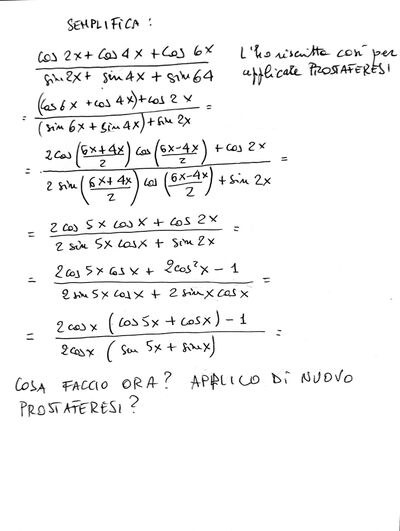 SEMPLIFICA:
cos 2x + cos 4x + cos 6x / sin 2x + sin 4x + sin 64
L'ho riscritta così per
applicare PROSTAFERESI
= (cos 6x + cos 4x) + cos 2x / (sin 6x + sin 4x) + sin 2x =
= 2 cos (6x+4x / 2) cos (6x-4x / 2) + cos 2x / 2 sin (6x+4x / 2) cos (6x-4x / 2) + sin 2x =
= 2 cos 5x cos x + cos 2x / 2 sin 5x cos x + sin 2x =
= 2 cos 5x cos x + 2cos²x - 1 / 2 sin 5x cos x + 2 sin x cos x =
= 2 cos x (cos 5x + cos x) - 1 / 2 cos x (sin 5x + sin x) =
COSA FACCIO ORA? APPLICO DI NUOVO
PROSTAFERESI?